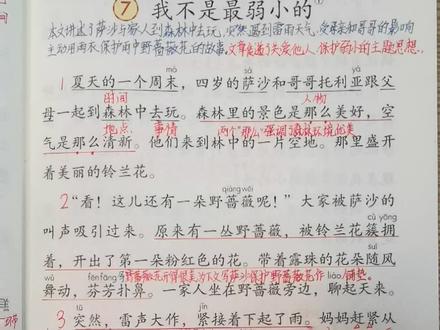 7 我不是最弱小的①
本文讲述了萨沙与家人到森林中去玩,突然遇到雷雨天气,受母亲和哥哥的影响
主动用雨衣保护雨中野蔷薇花的故事。文章表达了关爱他人、保护弱小的主题思想。
mò shā yà
1 夏天的一个周末,四岁的萨沙和哥哥托利亚跟父
时间 人物
母一起到森林中去玩。森林里的景色是那么美好,空
地点 事情 两个“那么”强调了森林环境优美
气是那么清新。他们来到林中的一片空地。那里盛开
着美丽的铃兰花。
qiáng wēi
2 “看!这儿还有一朵野蔷薇呢!”大家被萨沙的
cù yōng
叫声吸引过来。原来有一丛野蔷薇,被铃兰花簇拥
suí
着,开出了第一朵粉红色的花。带着露珠的花朵随风
fēn fāng 野蔷薇花开得很美,为下文写萨沙保护野蔷薇花作 liáo 铺垫。
舞动,芬芳扑鼻。一家人坐在野蔷薇旁边,聊起天来。
tū jǐn
3 突然,雷声大作,紧接着下起了雨。妈妈赶紧从